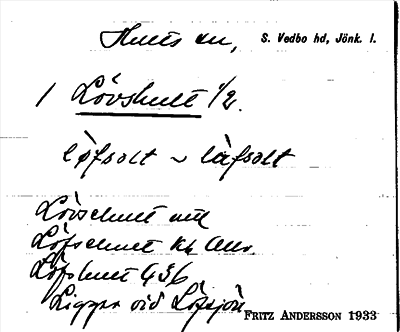 Hults sn, S. Vedbo hd, Jönk. l.
1 Lövshult 1/2.
lø̀fsɔlt ~ làfsɔlt
Lövshult
Löfshult
Löfshult 436
Ligger vid Löfsjön
FRITZ ANDERSSON 1933